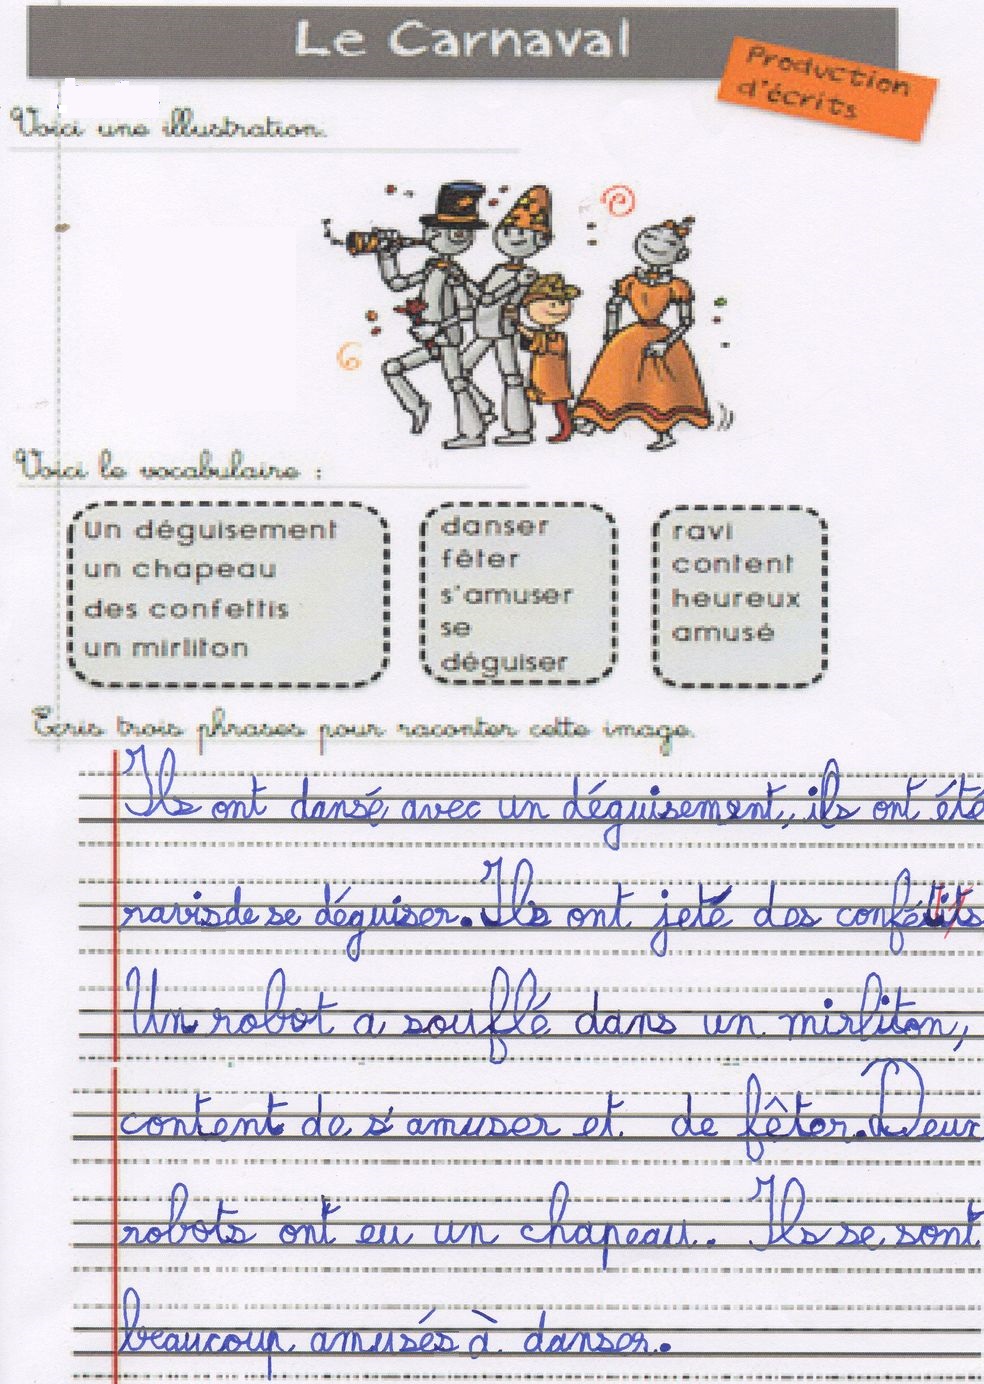 Le Carnaval
Production
d'écrits
Voici une illustration.
Voici le vocabulaire :
Un déguisement
un chapeau
des confettis
un mirliton
danser
fêter
s'amuser
se
déguiser
ravi
content
heureux
amusé
Ecris trois phrases pour raconter cette image.
Ils ont dansé avec un déguisement, ils ont été
ravis de se déguiser. Ils ont jeté des
Un robot a soufflé dans un mirliton,
content de s'amuser et de fêter. Deux
robots ont eu un chapeau. Ils se sont
beaucoup amusés à danser.